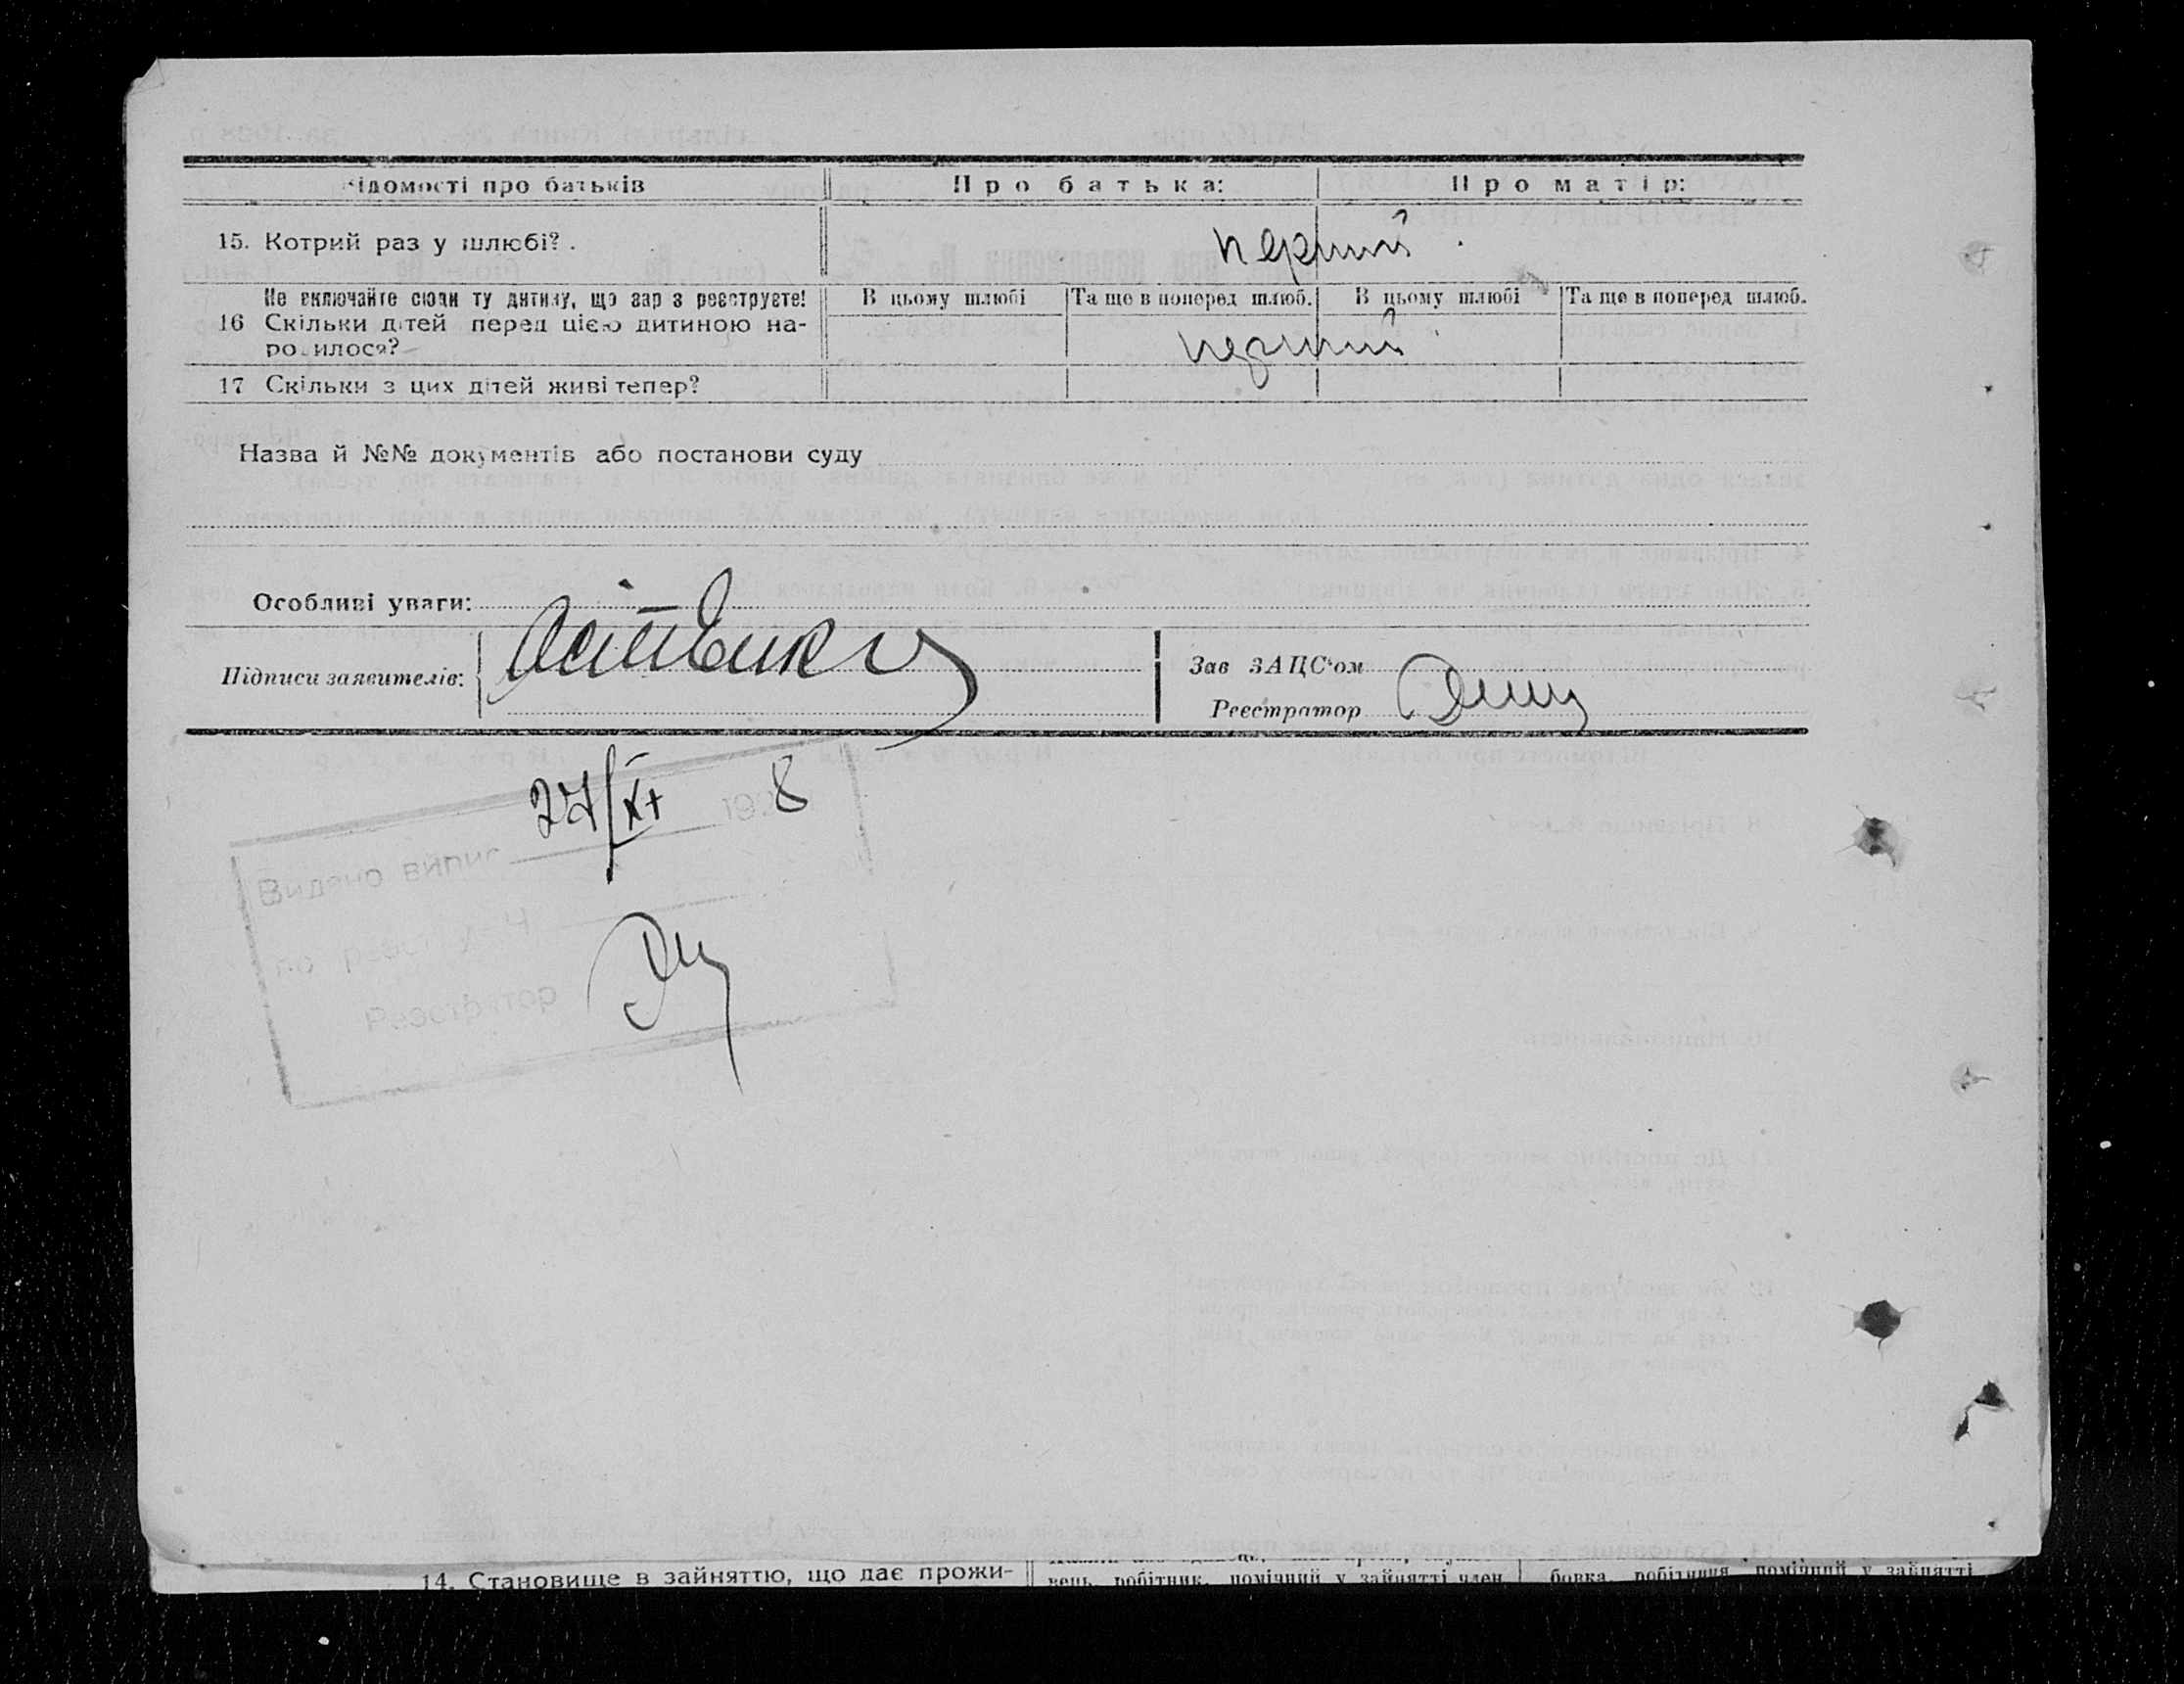 Відомості про батьків Про батька: Про матір:
15. Котрий раз у шлюбі? . перший .
Не включайте сюди ту дитину, що зараз реєструєте! В цьому шлюбі Та ще в поперед шлюб. В цьому шлюбі Та ще в поперед шлюб.
16 Скільки дітей перед цією дитиною на-
родилося? перший
17 Скільки з цих дітей живі тепер?
Назва й №№ документів або постанови суду
Особливі уваги:
Підписи заявителів: Зав ЗАЦС'ом
Реєстратор
27/XI 19 8
Видано випис
по реєстру Ч
Реєстратор
14. Становище в зайняттю, що дає прожи-
вець, робітник, помічний у зайнятті член
бовка, робітниця, помічний у зайнятті